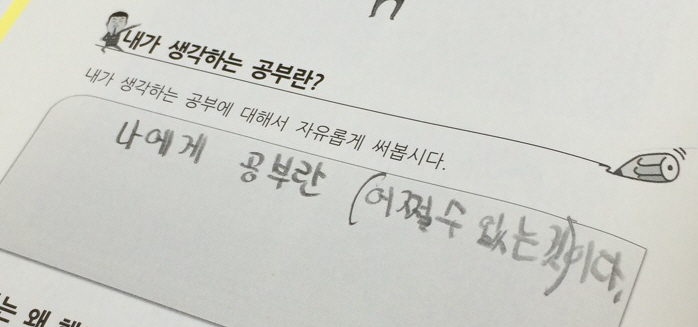 내가 생각하는 공부란?
내가 생각하는 공부에 대해서 자유롭게 써봅시다.
나에게 공부란 (어쩔수 없는것)이다.
는 왜